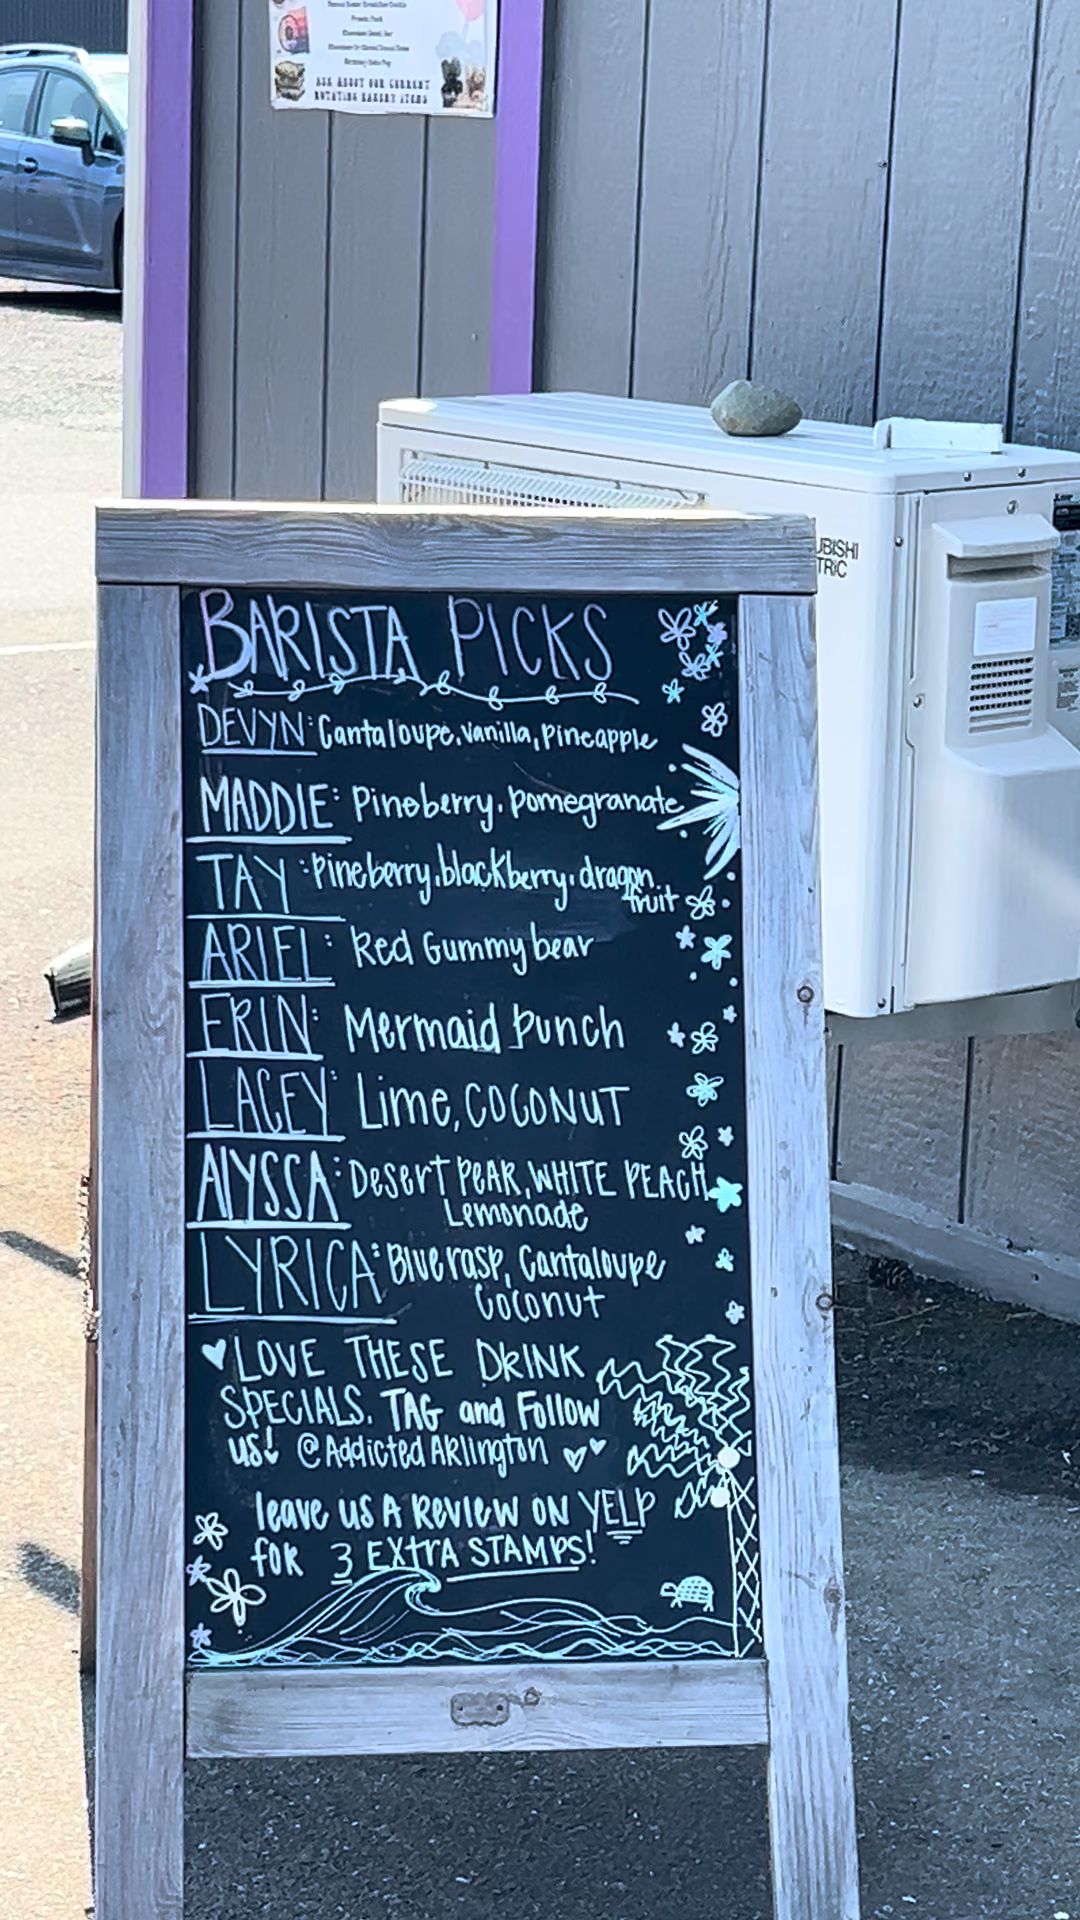 ASK ABOUT OUR CURRENT
ROTATING BAKERY ITEMS
UBISHI
TRIC
BARISTA PICKS
DEVYN: Cantaloupe, vanilla, pineapple
MADDIE: Pineberry, pomegranate
TAY: Pineberry, blackberry, dragon
fruit
ARIEL: Red Gummy bear
ERIN: Mermaid Punch
LACEY: Lime, COCONUT
AlYSSA: Desert PEAR, WHITE PEACH
Lemonade
LYRICA: Blue rasp, Cantaloupe
Coconut
LOVE THESE DRINK
SPECIALS. TAG and Follow
us! @Addicted Arlington
leave us A Review ON YELP
for 3 EXTRA STAMPS!